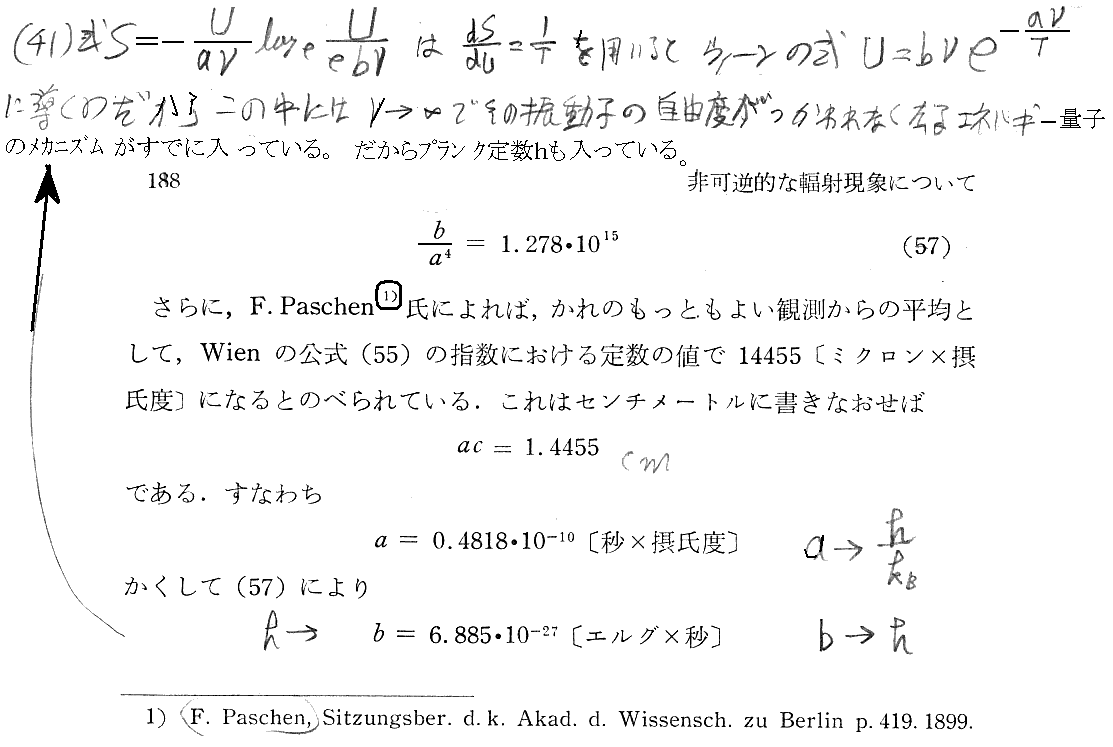 (41)式 S=-U/aν log e U/ebν は dS/dU=1/T を用いると ウィーンの式 U=bνe^-aν/T
に導くのだから この中には ν→∞でその振動子の自由度がつかわれなくなるエネルギー量子
のメカニズムがすでに入っている。 だからプランク定数hも入っている。
188 非可逆的な輻射現象について
b/a⁴ = 1.278•10¹⁵ (57)
さらに，F. Paschen¹⁾氏によれば，かれのもっともよい観測からの平均と
して，Wien の公式（55）の指数における定数の値で 14455〔ミクロン×摂
氏度〕になるとのべられている．これはセンチメートルに書きなおせば
ac = 1.4455 cm
である．すなわち
a = 0.4818•10⁻¹⁰〔秒×摂氏度〕 a→h/kB
かくして（57）により
h→ b = 6.885•10⁻²⁷〔エルグ×秒〕 b→h
1) F. Paschen, Sitzungsber. d. k. Akad. d. Wissensch. zu Berlin p. 419. 1899.